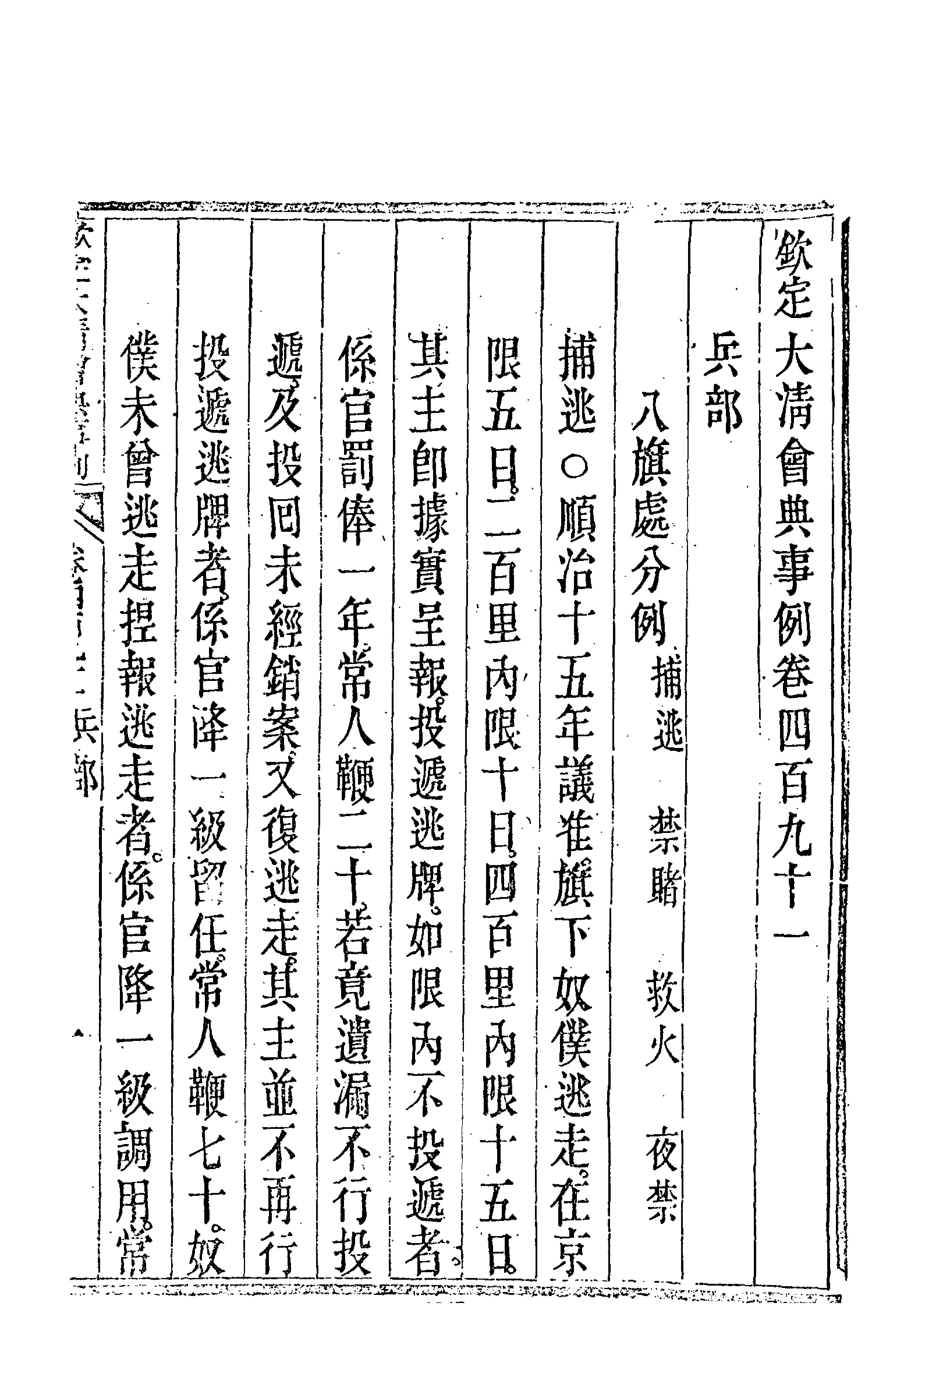 欽定大清會典事例卷四百九十一
兵部
八旗處分例 捕逃 禁賭 救火 夜禁
捕逃○順治十五年議准。旗下奴僕逃走。在京
限五日。二百里內限十日。四百里內限十五日。
其主卽據實呈報。投遞逃牌。如限內不投遞者。
係官罰俸一年。常人鞭二十。若竟遺漏不行投
遞、及投回未經銷案、又復逃走。其主並不再行
投遞逃牌者。係官降一級留任。常人鞭七十。奴
僕未曾逃走捏報逃走者。係官降一級調用。常
欽定大清會典事例 兵部 一